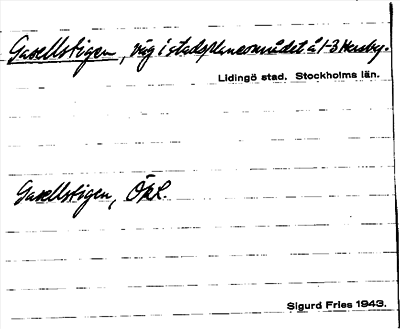 Gasellstigen, väg i stadsplaneområdet å 1-3 Hersby.
Lidingö stad. Stockholms län.
Gasellstigen, ÖkL.
Sigurd Fries 1943.